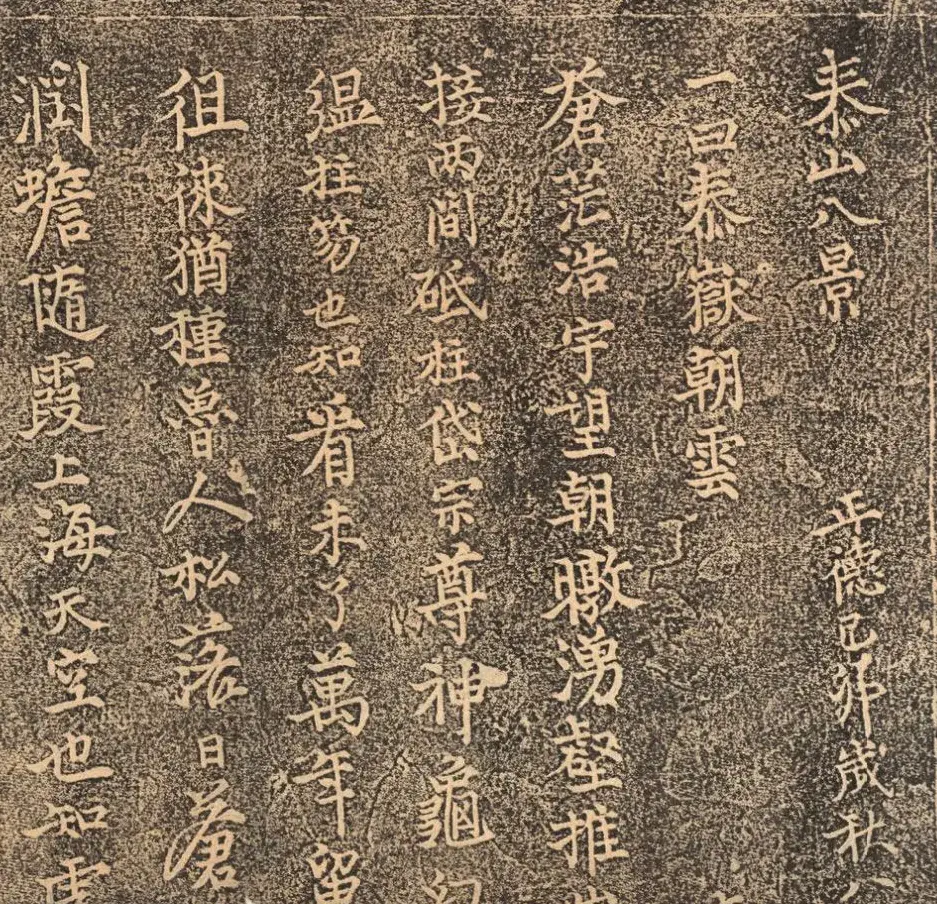 泰山八景 正德己卯歲秋八
一曰泰嶽朝雲
蒼茫浩宇望朝暾湧壑推
接兩間砥柱岱宗尊神龜幻
温柱笏也知看未了萬年留
徂徠猶種魯人松落日蒼
潤蟾随霞上海天空也知